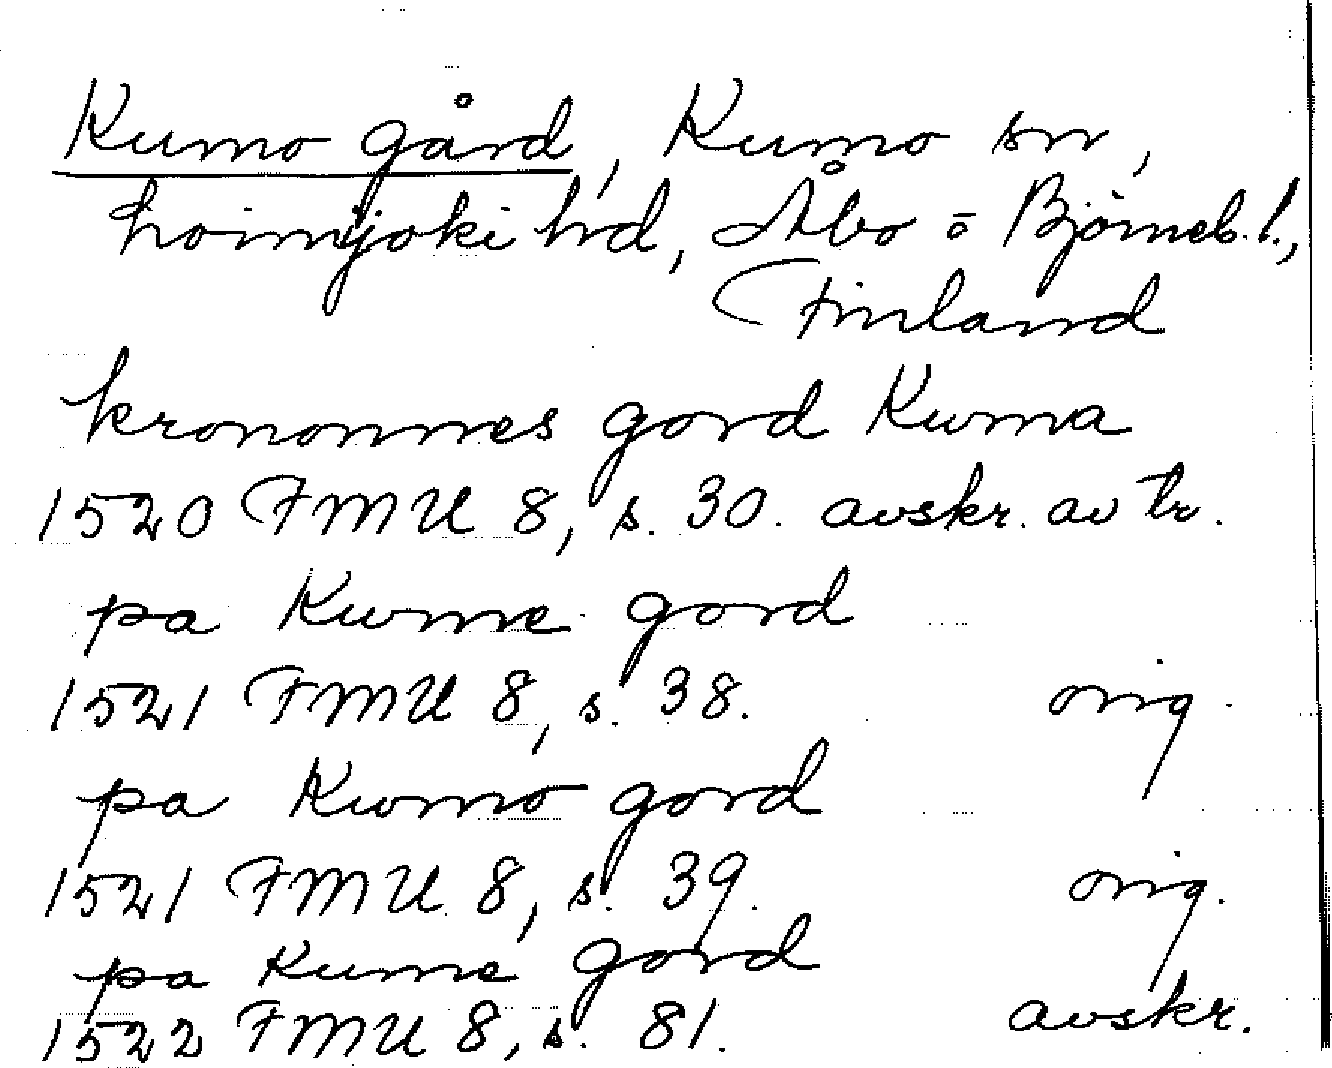 Kumo gård, Kumo sn,
hoimjoki hd, Åbo o Björneb. l.,
Finland
kronones gord Kuma
1520 FMU 8, s. 30. avskr. av tr.
pa Kwme gord
1521 FMU 8, s. 38. orig.
pa Kwmo gord
1521 FMU 8, s. 39. orig.
pa Kume gord
1522 FMU 8, s. 81. avskr.